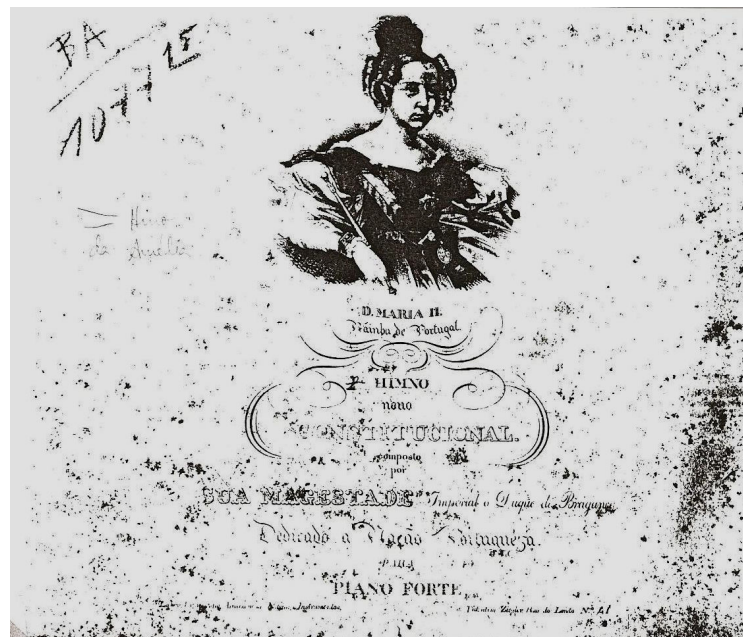 BA
107725
Hino
da Amélia
D. MARIA II.
Rainha de Portugal
HIMNO
novo
CONSTITUCIONAL.
composto
por
SUA MAGESTADE Imperial o Duque de Bragança
Dedicado á Nação Portugueza.
PARA
PIANO FORTE
Valentim Ziegler Rua do Loreto Nº 41